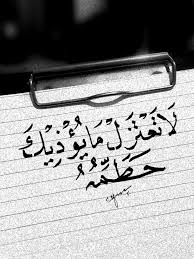 لَا تَعْتَزِلْ مَا يُؤذِيْكَ
حَطِّمْهُ